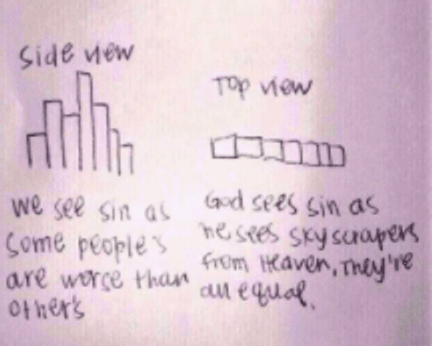 Side view
we see sin as
some people's
are worse than
other's
Top view
God sees sin as
he sees skyscrapers
from Heaven, They're
all equal.